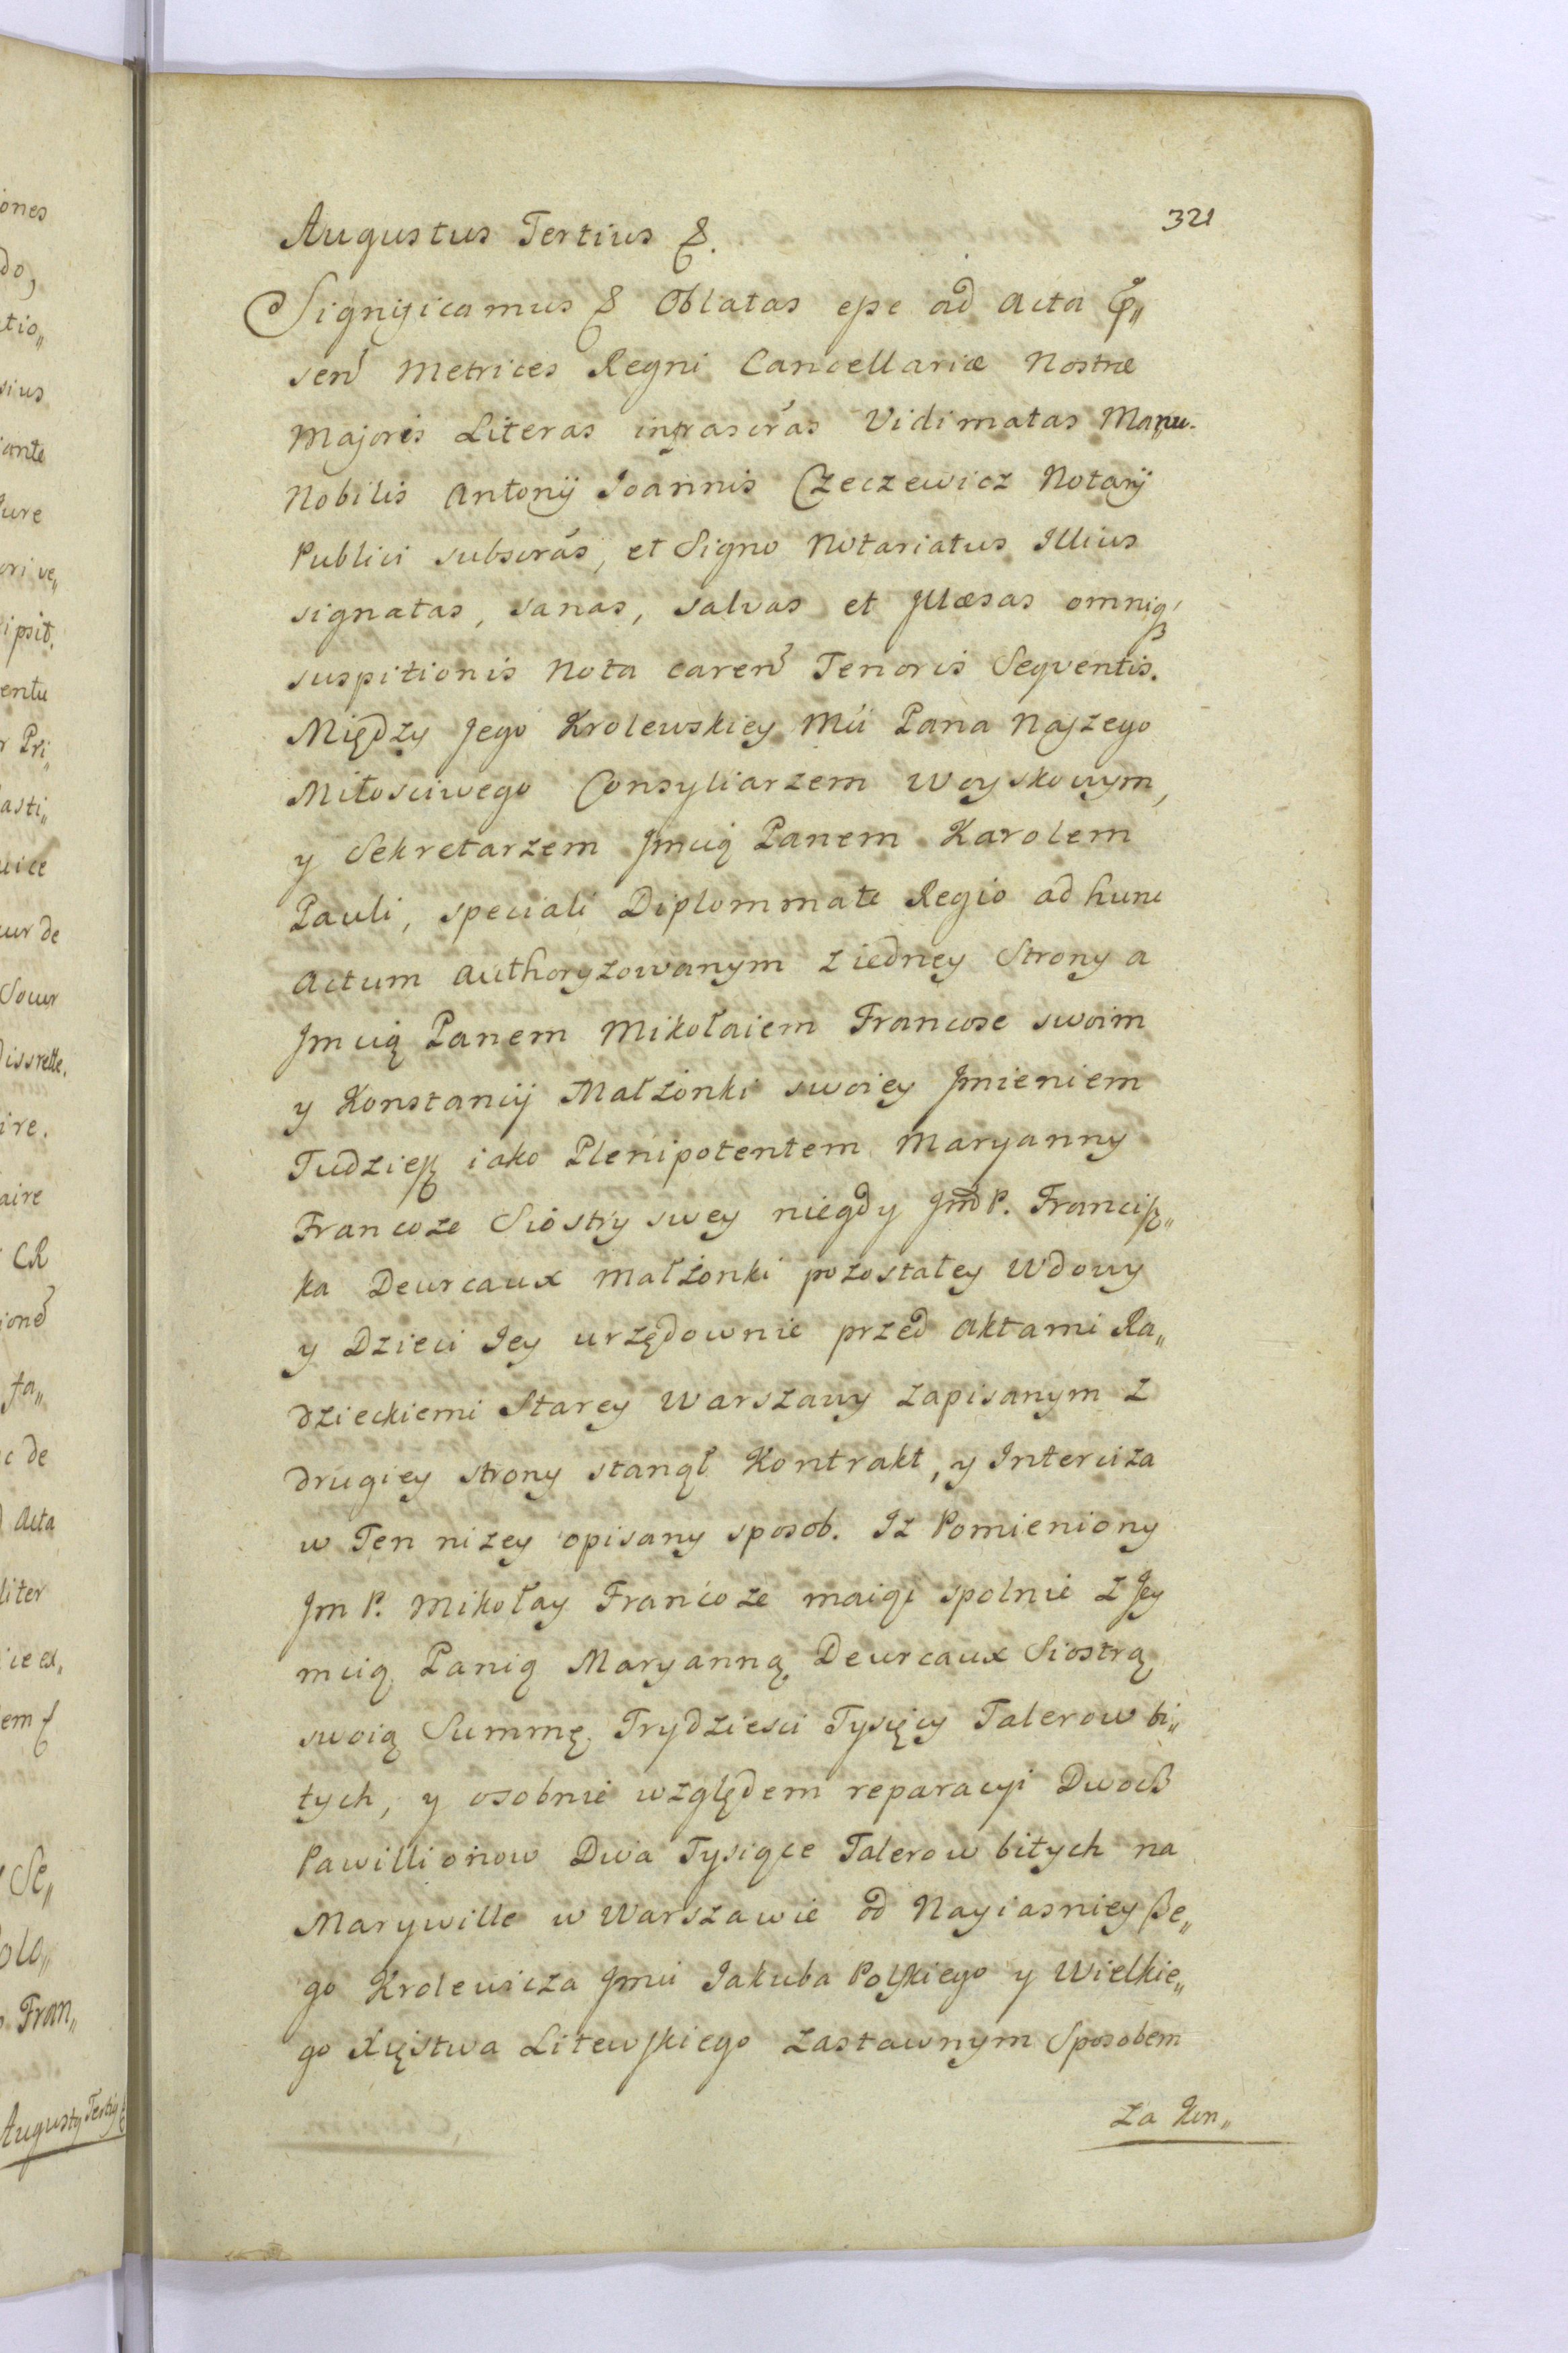 321
Augustus Tertius &.
Significamus & Oblatas esse ad Acta p͞r„
sen͞ Metrices Regni Cancellariæ Nostræ
Majoris Literas infrascr͞as Vidimatas Manu
Nobilis Antonij Joannis Czeczewicz Notarij
Publici subscr͞as, et Signo Notariatus Illius
signatas, sanas, salvas et Illæsas omniq;
suspitionis Nota caren͞ Tenoris Seqventis.
Między Jego Krolewskiey Mci Pana Naszego
Miłosciwego Consyliarzem Woyskowym,
y Sekretarzem Jmcią Panem Karolem
Pauli, speciali Diplommate Regio ad hunc
actum authoryzowanym z iedney Strony a
Jmcią Panem Mikołaiem Francose swoim
y Konstancij Małżonki swoiey Jmieniem
Tudziesz iako Plenipotentem Maryanny
Francoze Siostry swey niegdy Jmd P. Francisz„
ka Deurcaux Małżonki pozostałey Wdowy
y Dzieci Jey urzędownie przed Aktami Ra„
dzieckiemi Starey Warszawy zapisanym z
drugiey strony stanął Kontrakt, y Interciza
w Ten nizey opisany sposob. Iz Pomieniony
Jm P. Mikołay Francoze maiąc spolnie z Jey
mcią Panią Maryanną Deurcaux Siostrą
swoią Summę Trydziesci Tysięcy Talerow bi„
tych, y osobnie względem reparacyi Dwoch
Pawillionow Dwa Tysiące Talerow bitych na
Marywille w Warszawie od Nayiasnieysze„
go Krolewicza Jmci Jakuba Polskiego y Wielkie„
go Xięstwa Litewskiego zastawnym Sposobem
za Kon„